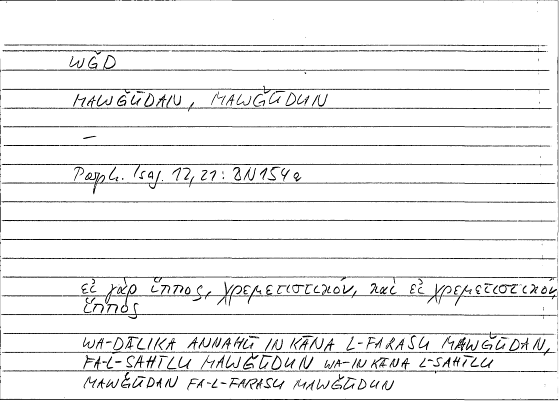 WǦD
MAWǦŪDAN, MAWǦŪDUN
—
Porph. Isag. 12,21: BN154a
εἰ γὰρ ἵππος, χρεμετιστικόν, καὶ εἰ χρεμετιστικόν,
ἵππος
WA-ḎĀLIKA ANNAHŪ IN KĀNA L-FARASU MAWǦŪDAN,
FA-L-ṢAHĪLU MAWǦŪDUN WA-IN KĀNA L-ṢAHĪLU
MAWǦŪDAN FA-L-FARASU MAWǦŪDUN